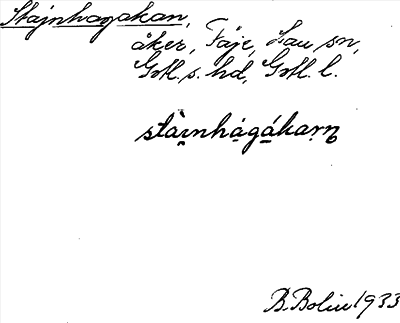 Stajnhagakan,
åker, Fäje, Lau sn,
Gotl. s. hd, Gotl. l.
stàinhágákaṛn
B. Bolin 1933